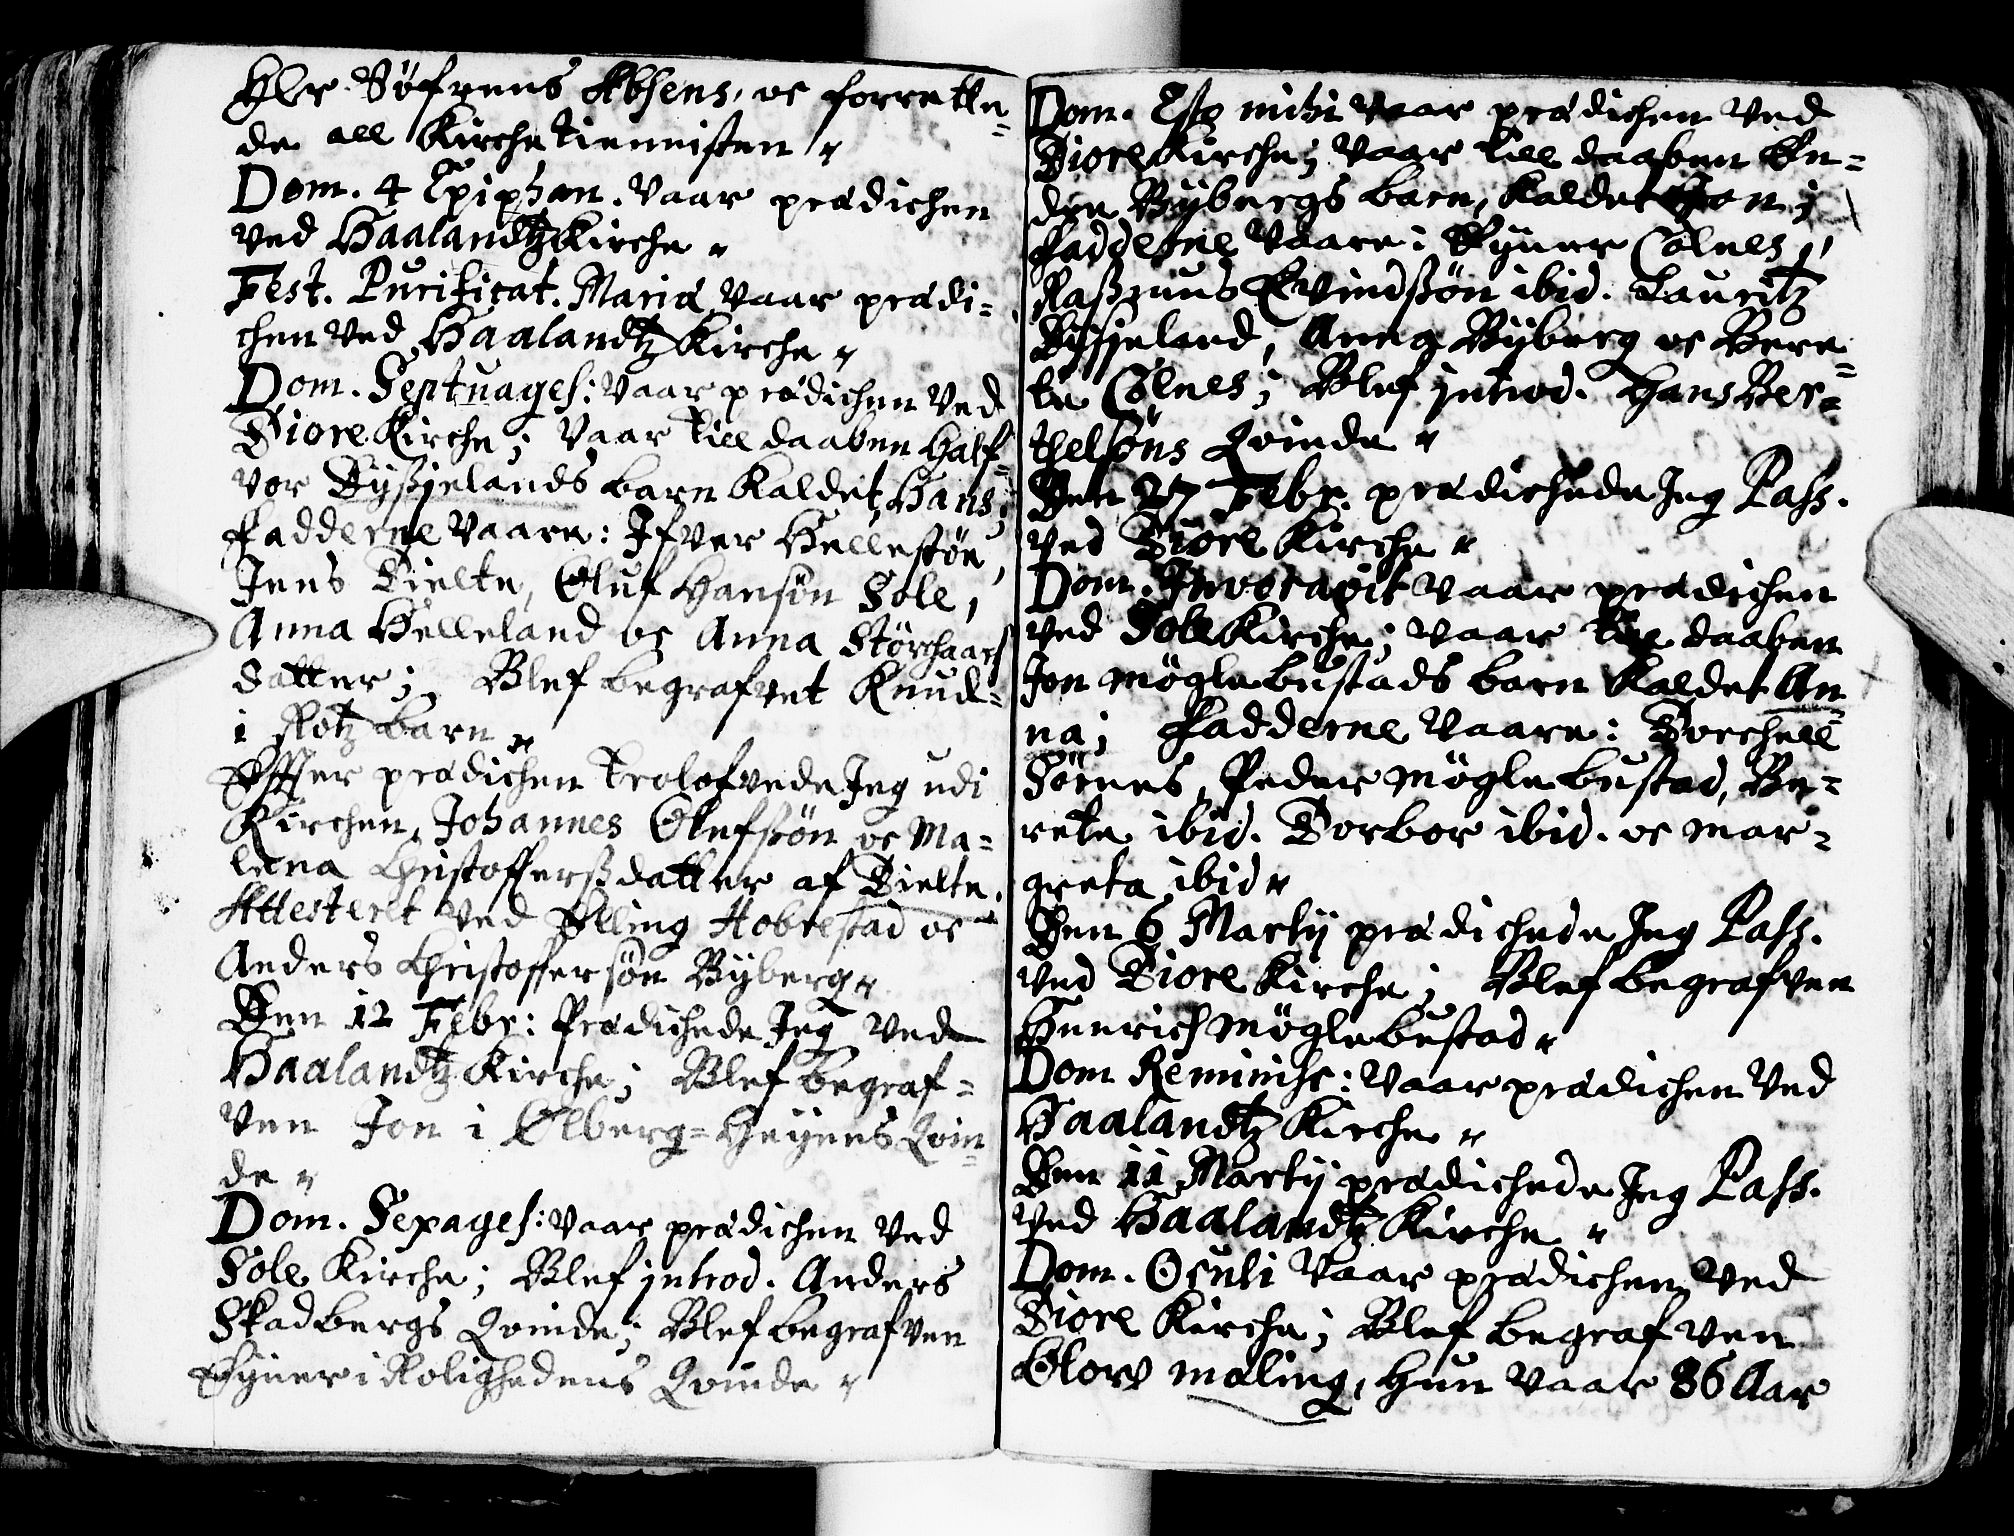 Her Söfrens Absens, oc forrette-
de all Kirche tiennisten
Dom. 4 Epiphan. vaar prædichen
ved Haalandtz Kirche
Fest. Purificat. Mariæ vaar prædi-
chen ved Haalandtz Kirche
Dom. Septuages: vaar prædichen ved
Tiore Kirche; vaar till daaben Half-
vor Dyßjelands barn kaldet Hans;
fadderne vaare: Ifver Hellestöe,
Jens Tielte, Oluf Hansön Sole,
Anna Helleland oc Anna Störchaars
datter; Blef begrafvet Knud
i Rotz barn
Effter prædichen trolofvede Jeg udi
Kirchen, Johannes Olufssön oc Ma-
lena Christofferßdatter af Tielte.
Attesteret ved Elling Hobrestad oc
Anders Christoffersön Byberg
Den 12 Febr: Prædichede Jeg ved
Haalandtz Kirche; Blef begraf-
ven Jon i Ølberg-Heyens Qvin-
de
Dom. Sexages: vaar prædichen ved
Sole Kirche; Blef introd. Anders
Skadbergs Qvinde; Blef begrafven
Eyner i Rolighedens Qvinde
Dom. Esto mihi vaar prædichen ved
Tiore Kirche; vaar till daaben
Bybergs barn, kaldet
fadderne vaare: Eyner Colnes,
Raßmus Evindßön ibid. Lauritz
Dysjeland, Anna Byberg oc Bere-
te Colnes; Blef introd. Hans Ber-
thelsöns Qvinde
Den 27 Febr. prædichede Jeg Pass.
ved Tiore Kirche
Dom. Invocavit vaar prædichen
ved Sole Kirche; vaar till daaben
Jon Möglebustads barn kaldet An-
na; Fadderne vaare: Torchell
Sörnes, Peder Möglebustad, Be-
rete ibid. Torbor ibid. oc Mar-
greta ibid
Den 6 Martij prædichede Jeg Pass.
ved Tiore Kirche; Blef begrafven
Henrich Möglebustad
Dom Reminisc: vaar prædichen ved
Haalandtz Kirche
Den 11 Martij prædichede Jeg Pass.
ved Haalandtz Kirche
Dom. Oculi vaar prædichen ved
Tiore Kirche; Blef begrafven
Olov Maling, hun vaar 86 Aar